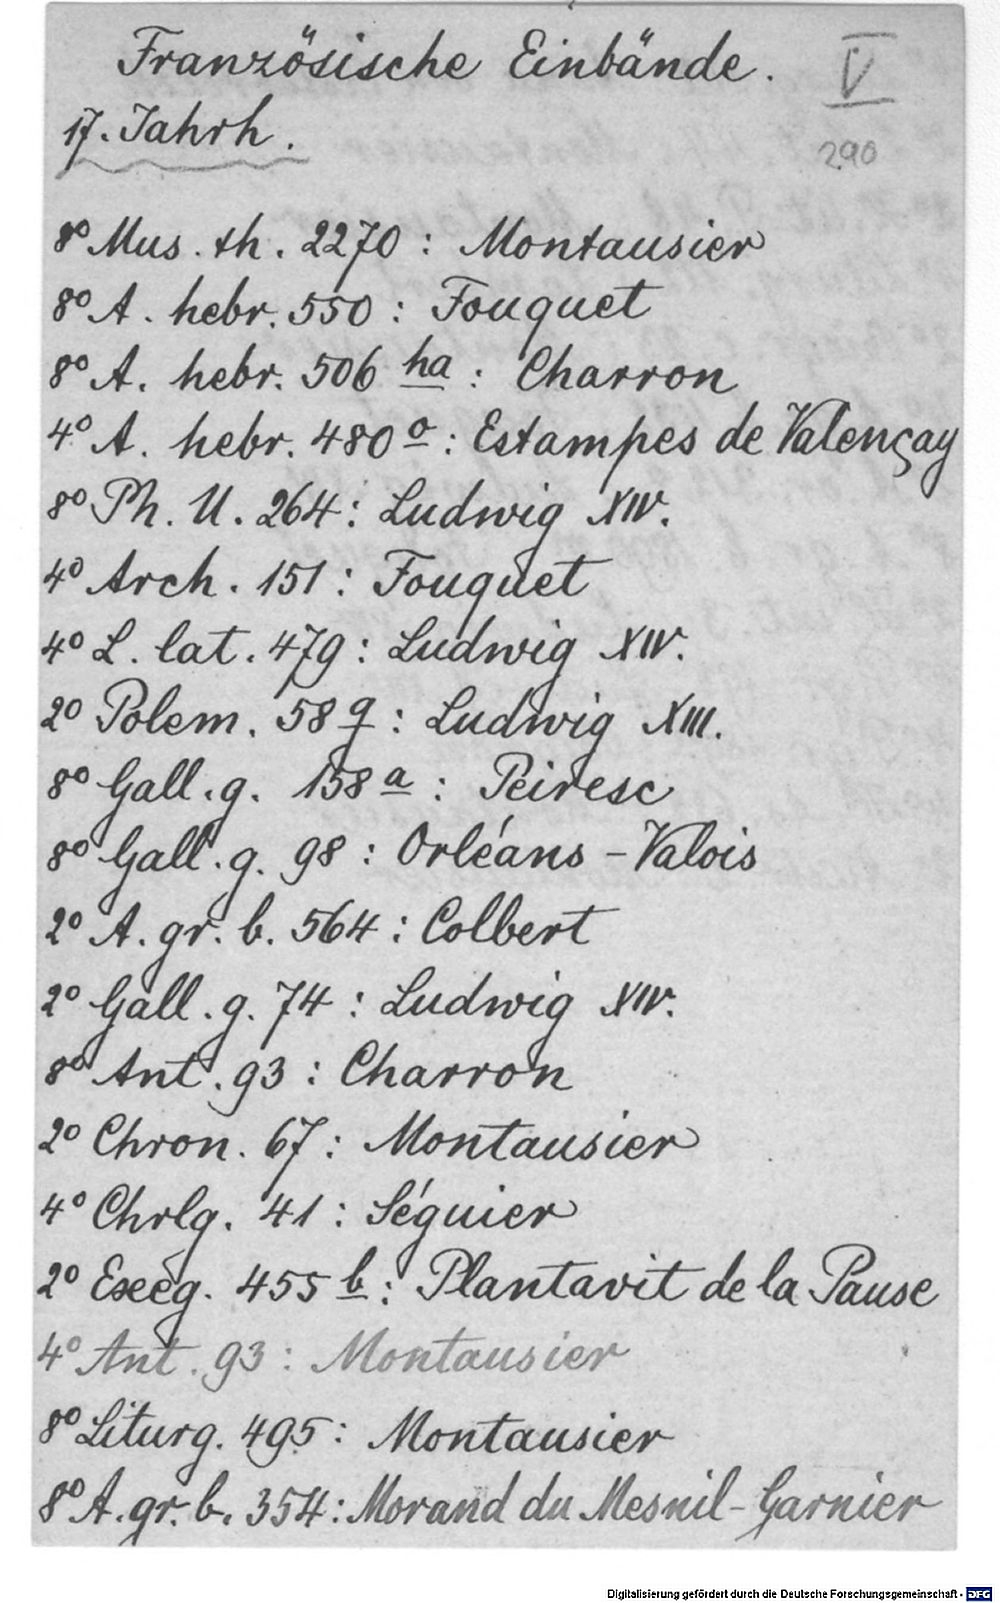 Französische Einbände.
V
17. Jahrh.
290
8° Mus. th. 2270 : Montausier
8° A. hebr. 550 : Fouquet
8° A. hebr. 506 ha : Charron
4° A. hebr. 480 o : Estampes de Valençay
8° Ph. U. 264 : Ludwig XIV.
4° Arch. 151 : Fouquet
4° L. lat. 479 : Ludwig XIV.
2° Polem. 58 q : Ludwig XIII.
8° Gall. g. 158 a : Peiresc
8° Gall. g. 98 : Orléans - Valois
2° A. gr. b. 564 : Colbert
2° Gall. g. 74 : Ludwig XIV.
8° Ant. 93 : Charron
2° Chron. 67 : Montausier
4° Chrlg. 41 : Séguier
2° Exeg. 455 b : Plantavit de la Pause
4° Ant. 93 : Montausier
8° Liturg. 495 : Montausier
8° A. gr. b. 354 : Morand du Mesnil-Garnier
Digitalisierung gefördert durch die Deutsche Forschungsgemeinschaft - DFG